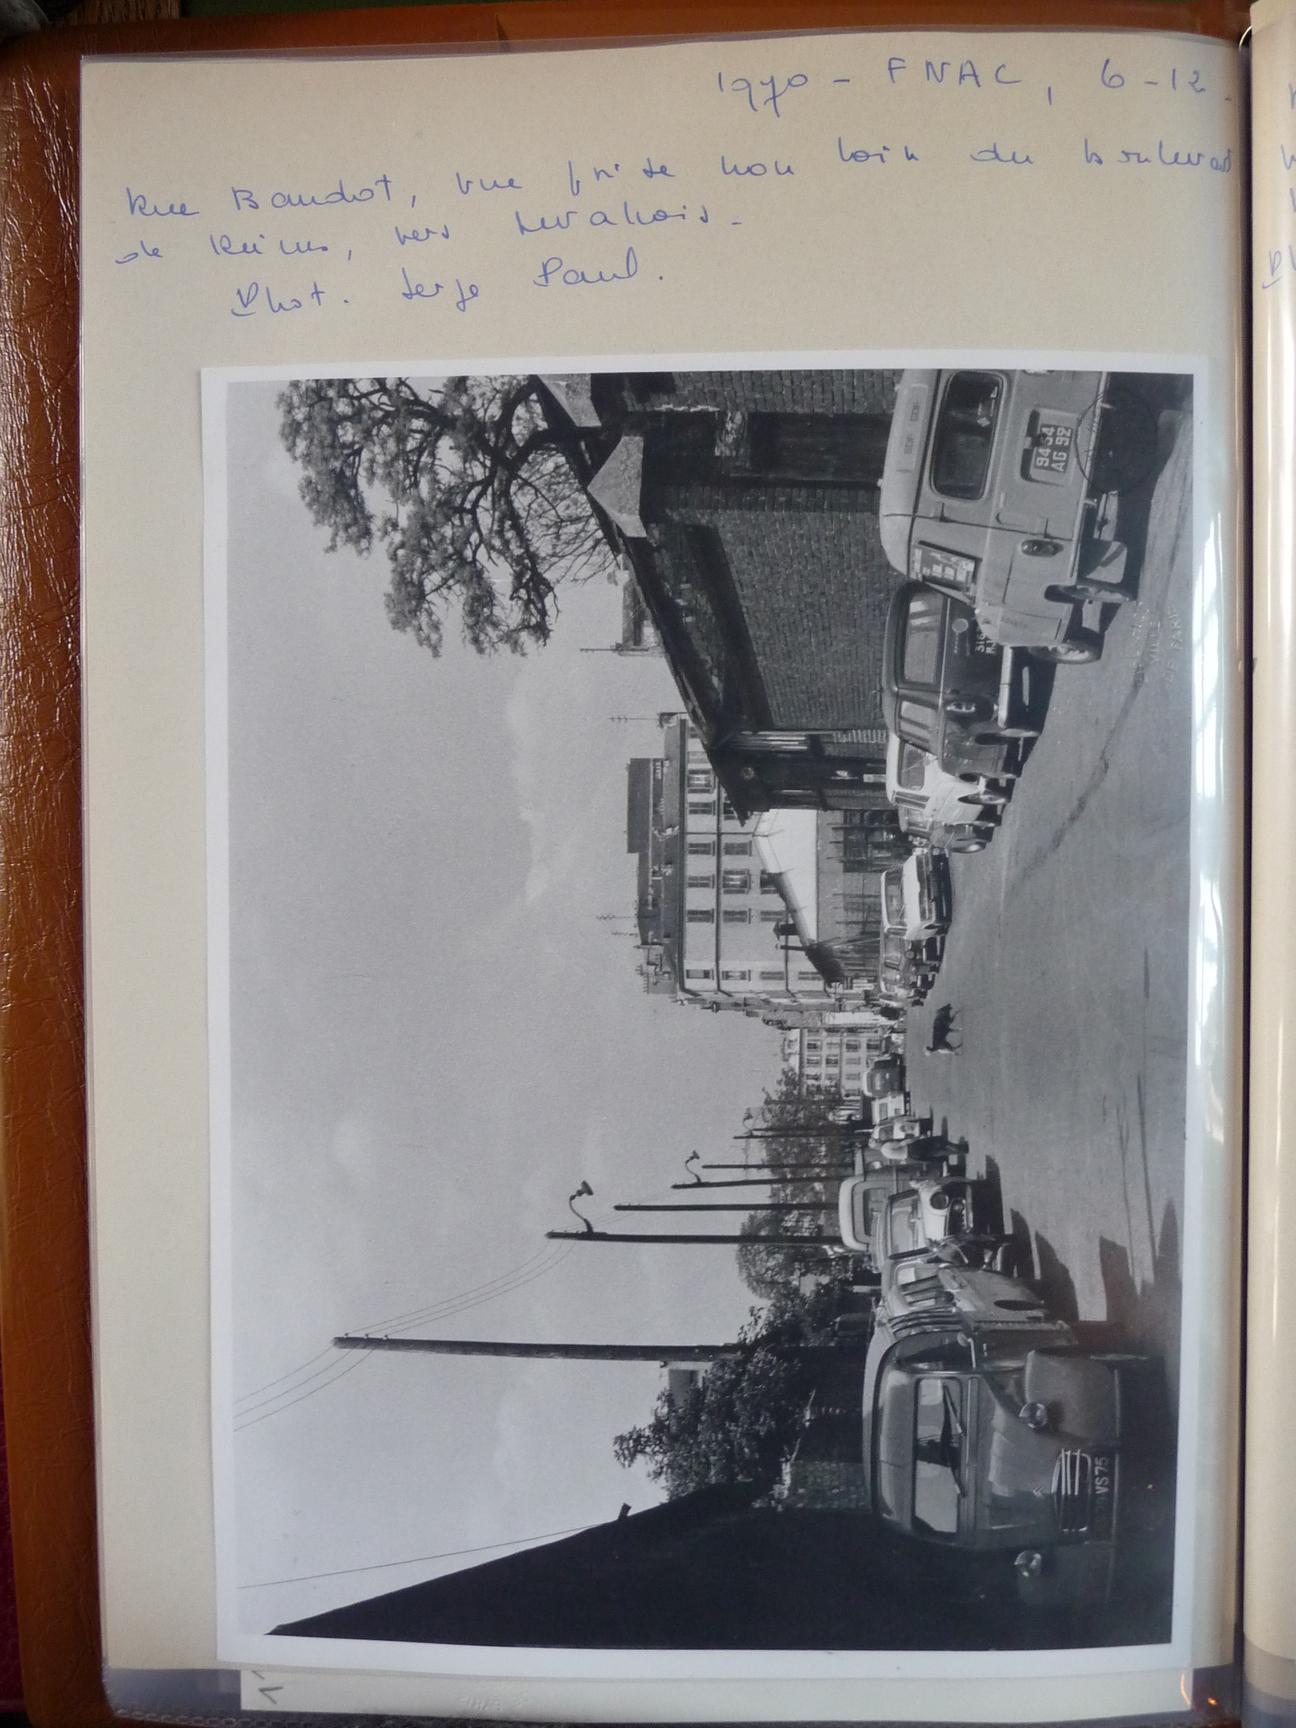 1970 - FNAC, 6-12.
Rue Baudot, vue prise non loin du boulevard
de Reims, vers Levallois -
Phot. Serge Paul.
9434
AG 92
VS 75
VILLE
DE PARIS